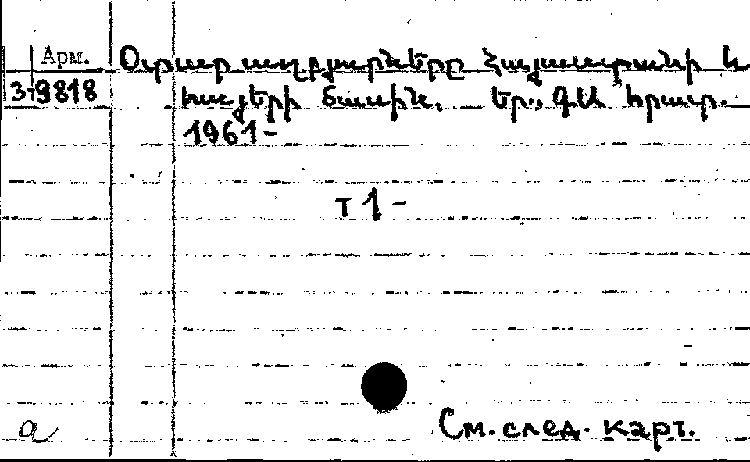 Арм. Օտար աղբյուրները Հայաստանի և
3-9818 հայերի մասին. Եր., ԳԱ հրատ.
1961-
т 1-
а
См. след. карт.